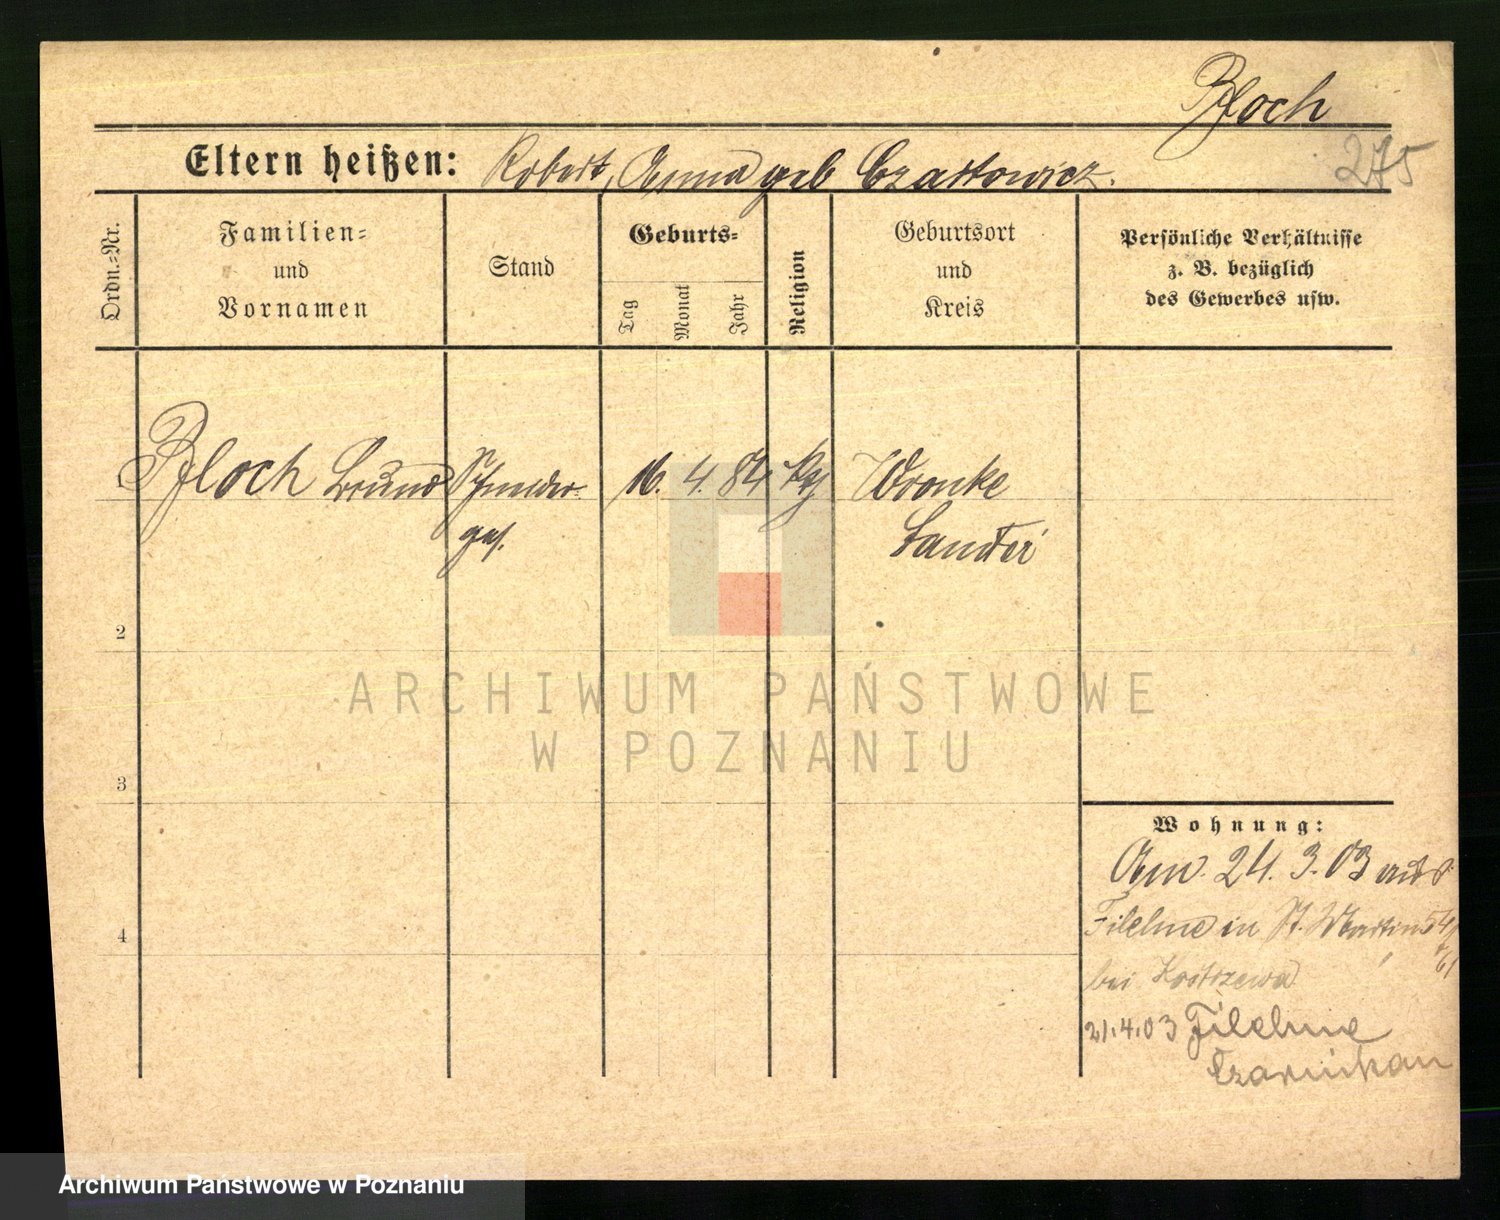 Bloch
275
Eltern heißen: Robert, Anna geb Czattowicz.
Ordn.-Nr.
Familien-
und
Vornamen
Stand
Geburts-
Tag
Monat
Jahr
Religion
Geburtsort
und
Kreis
Persönliche Verhältnisse
z. B. bezüglich
des Gewerbes usw.
Bloch Bruno Schneider- 16. 4. 84 Wronke
ges. Samter
2
ARCHIWUM PAŃSTWOWE
W POZNANIU
3
Wohnung:
Am 24. 3. 03 aus
4
Filehne in St. Martin 54/
61
bei Kostrzewa
21.4.03 Filehne
Czarnikau
Archiwum Państwowe w Poznaniu